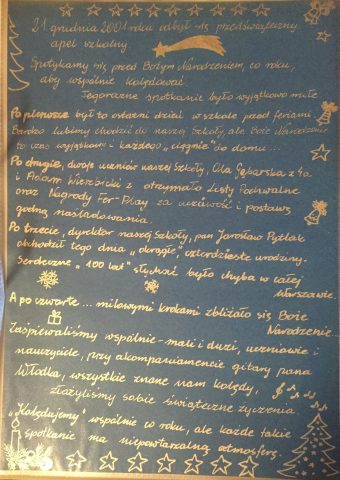 21 grudnia 2001 roku odbył się przedświąteczny
apel szkolny
Spotykamy się przed Bożym Narodzeniem, co roku,
aby wspólnie kolędować
Tegoroczne spotkanie było wyjątkowo miłe
Po pierwsze był to ostatni dzień w szkole przed feriami
Bardzo lubimy chodzić do naszej Szkoły, ale Boże Narodzenie
to czas wyjątkowy i każdego „ciągnie" do domu...
Po drugie, dwoje uczniów naszej Szkoły, Ola z
i Adam Wierzbicki z otrzymało Listy Pochwalne
oraz Nagrody Fer-Play za uczciwość i postawę
godną naśladowania.
Po trzecie, dyrektor naszej Szkoły, pan Jarosław Pytlak
obchodził tego dnia „okrągłe", czterdzieste urodziny.
Serdeczne „100 lat" słychać było chyba w całej
Warszawie.
A po czwarte... milowymi krokami zbliżało się Boże
Narodzenie...
Zaśpiewaliśmy wspólnie - mali i duzi, uczniowie i
nauczyciele, przy akompaniamencie gitary pana
Włodka, wszystkie znane nam kolędy,
złożyliśmy sobie świąteczne życzenia.
„Kolędujemy" wspólnie co roku, ale każde takie
spotkanie ma niepowtarzalną atmosferę.